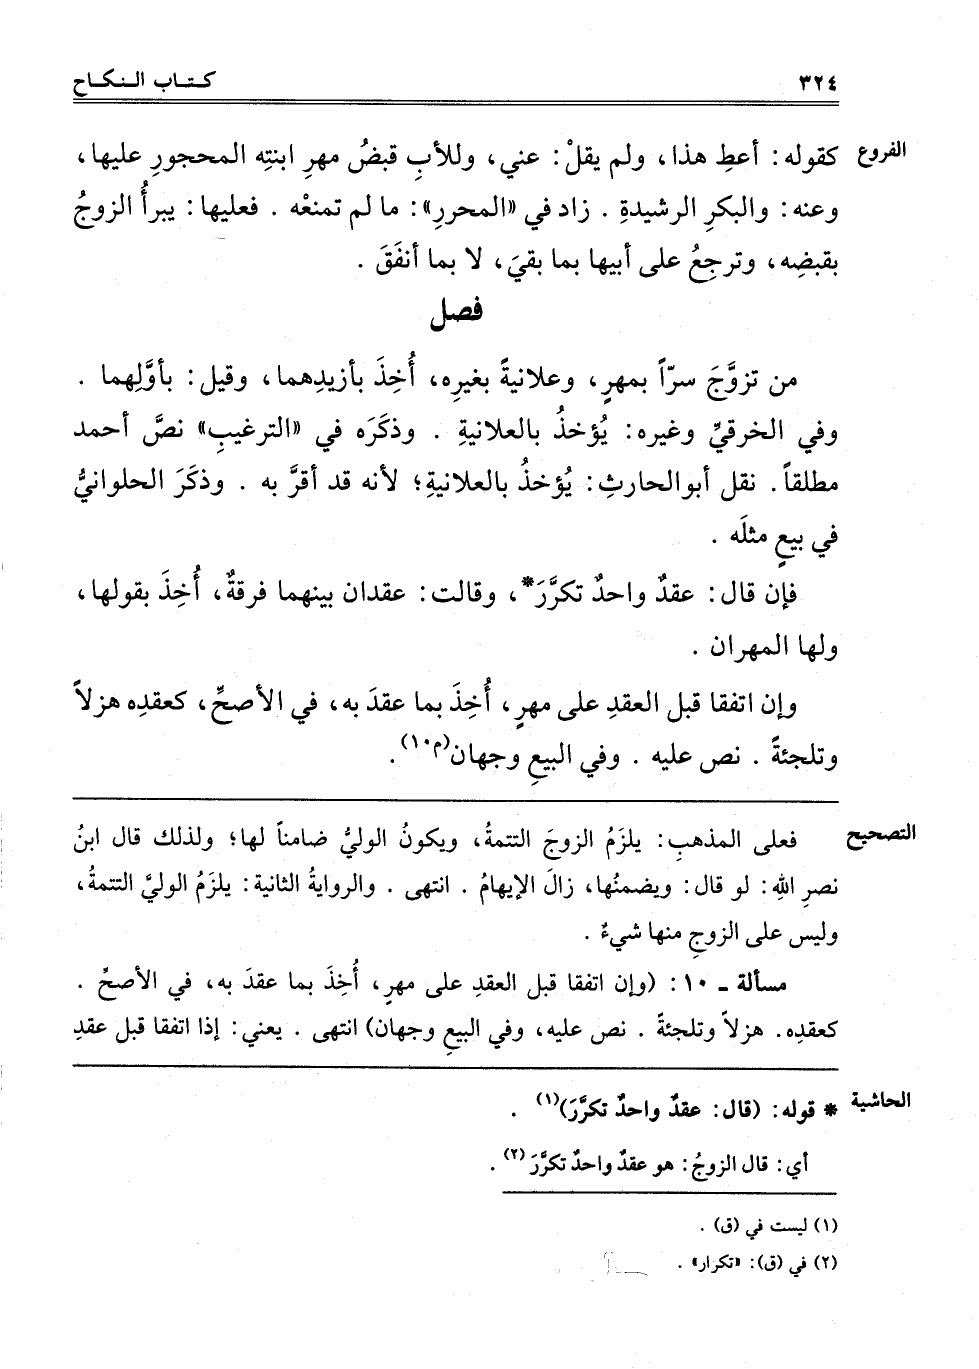 ٣٢٤ كتاب النكاح
الفروع كقوله: أعطِ هذا، ولم يقلْ: عني، وللأبِ قبضُ مهرِ ابنتِه المحجورِ عليها،
وعنه: والبكرِ الرشيدةِ. زاد في «المحررِ»: ما لم تمنعْه. فعليها: يبرأُ الزوجُ
بقبضِه، وترجِعُ على أبيها بما بقيَ، لا بما أنفَقَ.
فصل
من تزوَّجَ سرّاً بمهرٍ، وعلانيةً بغيرِه، أُخِذَ بأزيدِهما، وقيل: بأوَّلِهما.
وفي الخرقيِّ وغيره: يُؤخذُ بالعلانيةِ. وذكَرَه في «الترغيبِ» نصَّ أحمد
مطلقاً. نقل أبو الحارثِ: يُؤخذُ بالعلانيةِ؛ لأنه قد أقرَّ به. وذكَرَ الحلوانيُّ
في بيعٍ مثلَه.
فإن قال: عقدٌ واحدٌ تكرَّرَ*، وقالت: عقدان بينهما فرقةٌ، أُخِذَ بقولها،
ولها المهران.
وإن اتفقا قبل العقدِ على مهرٍ، أُخِذَ بما عقدَ به، في الأصحِّ، كعقدِه هزلاً
وتلجئةً. نص عليه. وفي البيعِ وجهان(م١٠).
التصحيح فعلى المذهبِ: يلزَمُ الزوجَ التتمةُ، ويكونُ الوليُّ ضامناً لها؛ ولذلك قال ابنُ
نصرِ اللهِ: لو قال: ويضمنُها، زالَ الإيهامُ. انتهى. والروايةُ الثانية: يلزَمُ الوليَّ التتمةُ،
وليس على الزوجِ منها شيءٌ.
مسألة ـ ١٠: (وإن اتفقا قبل العقدِ على مهرٍ، أُخِذَ بما عقدَ به، في الأصحِّ.
كعقدِه. هزلاً وتلجئةً. نص عليه، وفي البيعِ وجهان) انتهى. يعني: إذا اتفقا قبل عقدِ
الحاشية * قوله: (قال: عقدٌ واحدٌ تكرَّرَ)(١).
أي: قال الزوجُ: هو عقدٌ واحدٌ تكرَّرَ(٢).
(١) ليست في (ق).
(٢) في (ق): «تكرار».